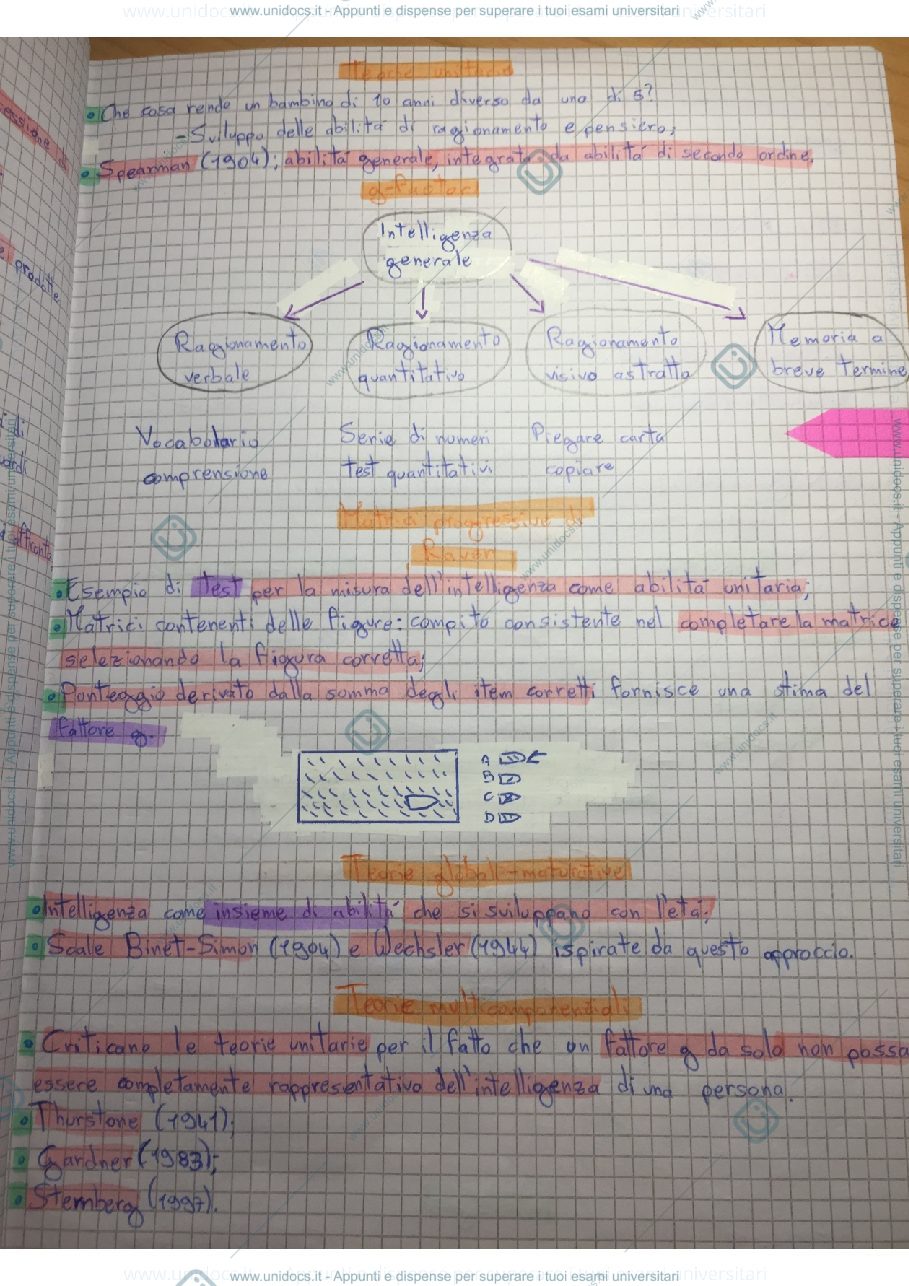 www.unidocs.it - Appunti e dispense per superare i tuoi esami universitari
Teorie unitarie
Che cosa rende un bambino di 10 anni diverso da uno di 5?
- Sviluppo delle abilità di ragionamento e pensiero;
Spearman (1904); abilità generale, integrata da abilità di secondo ordine.
g-Factor
Intelligenza
generale
Ragionamento verbale
Ragionamento quantitativo
Ragionamento visivo astratto
Memoria a breve termine
Vocabolario
comprensione
Serie di numeri
test quantitativi
Piegare carta
copiare
Matrici progressive di
Raven
Esempio di test per la misura dell'intelligenza come abilità unitaria;
Matrici contenenti delle figure: compito consistente nel completare la matrice
selezionando la figura corretta;
Punteggio derivato dalla somma degli item corretti fornisce una stima del
fattore g.
A
B
C
D
Teorie globali-maturative
Intelligenza come insieme di abilità che si sviluppano con l'età;
Scale Binet-Simon (1904) e Wechsler (1944) ispirate da questo approccio.
Teorie multicomponenziali
Criticano le teorie unitarie per il fatto che un fattore g da solo non possa
essere completamente rappresentativo dell'intelligenza di una persona.
Thurstone (1941);
Gardner (1983);
Sternberg (1997).
www.unidocs.it - Appunti e dispense per superare i tuoi esami universitari